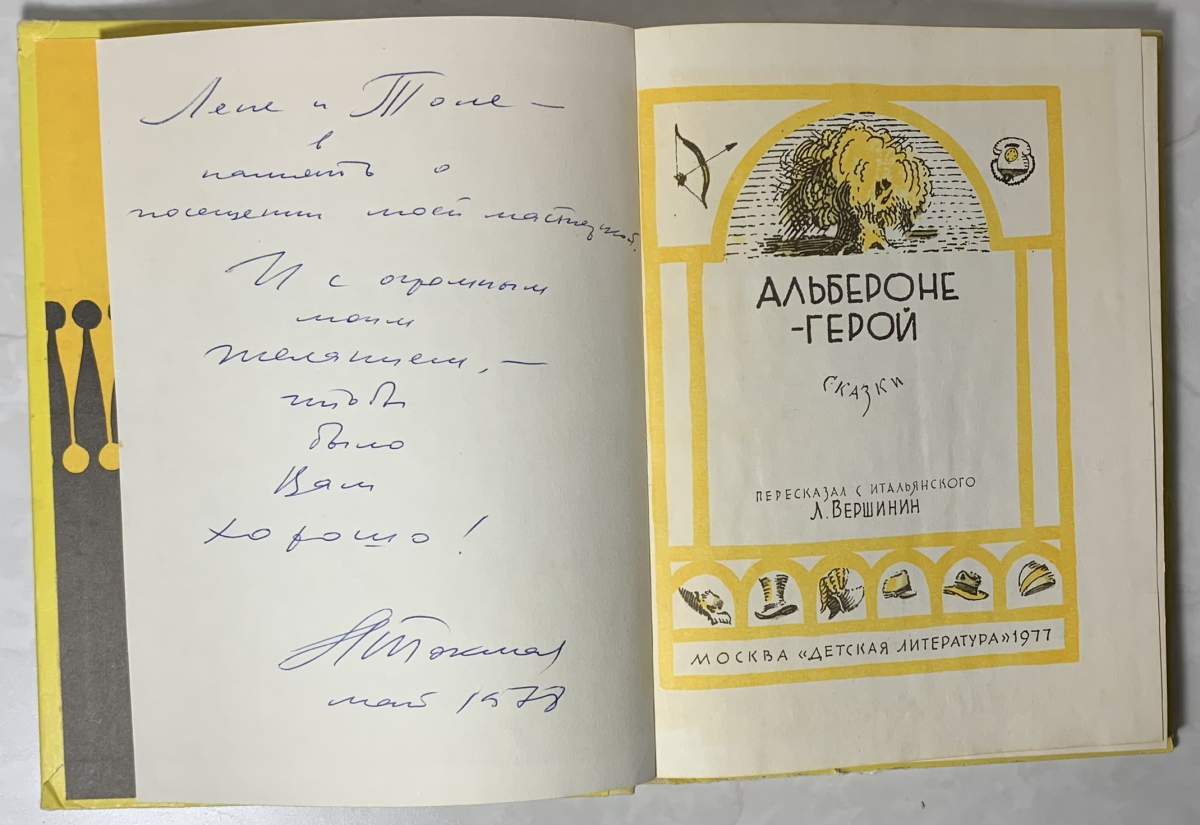 Лене и Толе —
в
память о
посещении моей мастерской.
И с огромным
моим
желанием, —
чтобы
было
Вам
хорошо!
май 1978
АЛЬБЕРОНЕ
-ГЕРОЙ
СКАЗКИ
ПЕРЕСКАЗАЛ С ИТАЛЬЯНСКОГО
Л. ВЕРШИНИН
МОСКВА «ДЕТСКАЯ ЛИТЕРАТУРА» 1977